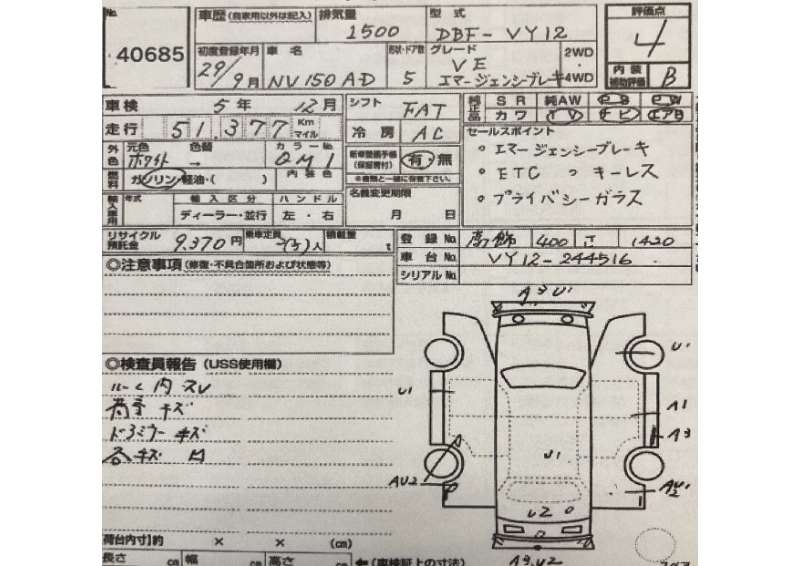 No. 40685
車歴 (自家用以外は記入)
排気量 1500
型式 DBF-VY12
評価点 4
内装補助評価 B
初度登録年月 29/9月
車名 NV150 AD
形状・ドア数 5
グレード VE エマージェンシーブレーキ
2WD
・
4WD
車検 5年 12月
シフト FAT
純正品 SR 純AW PS PW
カワ TV ナビ エアB
走行 51,377 Km マイル
冷房 AC
セールスポイント
外色 元色 ホワイト 色替 → カラーNo. QM1
新車整備手帳(保証書付) 有・無
※書類と一緒に保管下さい。
。エマージェンシーブレーキ
燃料 ガソリン・軽油・( ) 内装色
。ETC 。キーレス
輸入車用 年式 輸入区分 ハンドル
ディーラー・並行 左・右
名義変更期限
月 日
。プライバシーガラス
リサイクル預託金 9,370円
乗車定員 2(5)人
積載量 t
登録No. 400 1420
車台No. VY12-244516
シリアルNo.
◎注意事項 (修復・不具合箇所および状態等)
◎検査員報告 (USS使用欄)
ルーム内スレ
荷室キズ
ドアミラーキズ
各キズ凹
A3 U1
U1
U1
A1
A3
U1
AU2
AU2
U2
A3.U2
荷台内寸】約 × × (cm)
長さ cm 幅 cm 高さ cm
←(車検証上の寸法)